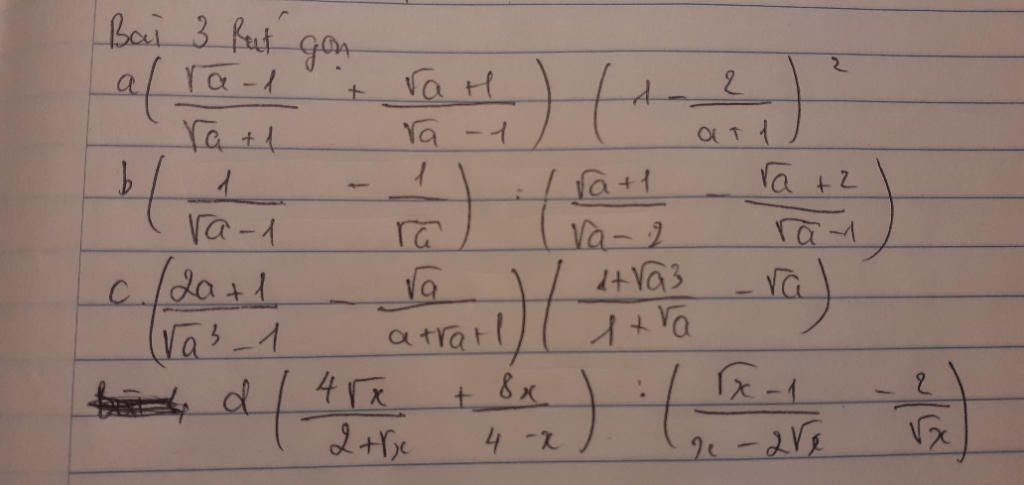 Bài 3 Rút gọn
a ( (√a - 1)/(√a + 1) + (√a + 1)/(√a - 1) ) ( 1 - 2/(a + 1) )²
b ( 1/(√a - 1) - 1/√a ) : ( (√a + 1)/(√a - 2) - (√a + 2)/(√a - 1) )
c. ( (2a + 1)/(√a³ - 1) - √a/(a + √a + 1) ) ( (1 + √a³)/(1 + √a) - √a )
d ( 4√x/(2 + √x) + 8x/(4 - x) ) : ( (√x - 1)/(x - 2√x) - 2/√x )